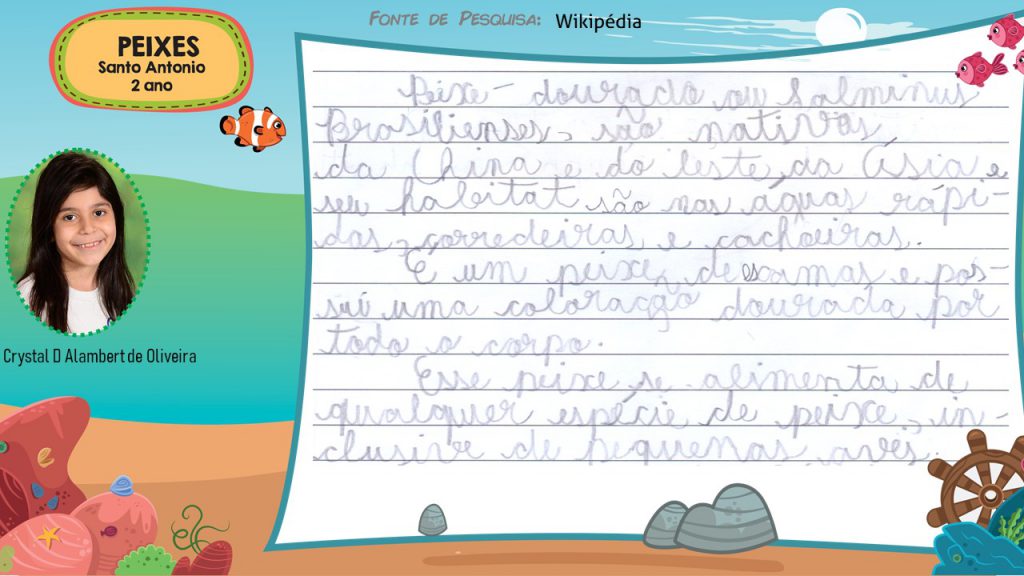 FONTE DE PESQUISA: Wikipédia
PEIXES
Santo Antonio
2 ano
Crystal D Alambert de Oliveira
Peixe-dourado ou Salminus
Brasilienses, são nativos
da China e do leste da Ásia e
seu habitat são nas águas rápi-
das, corredeiras e cachoeiras.
É um peixe de escamas e pos-
sui uma coloração dourada por
todo o corpo.
Esse peixe se alimenta de
qualquer espécie de peixe, in-
clusive de pequenas aves.